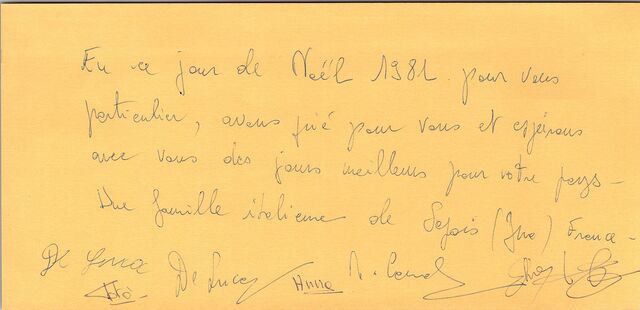 En ce jour de Noël 1981. pour vous
particulier, avons prié pour vous et espérons
avec vous des jours meilleurs pour votre pays -
Une famille italienne de (Jura) France -
De Luca De Luca Anna